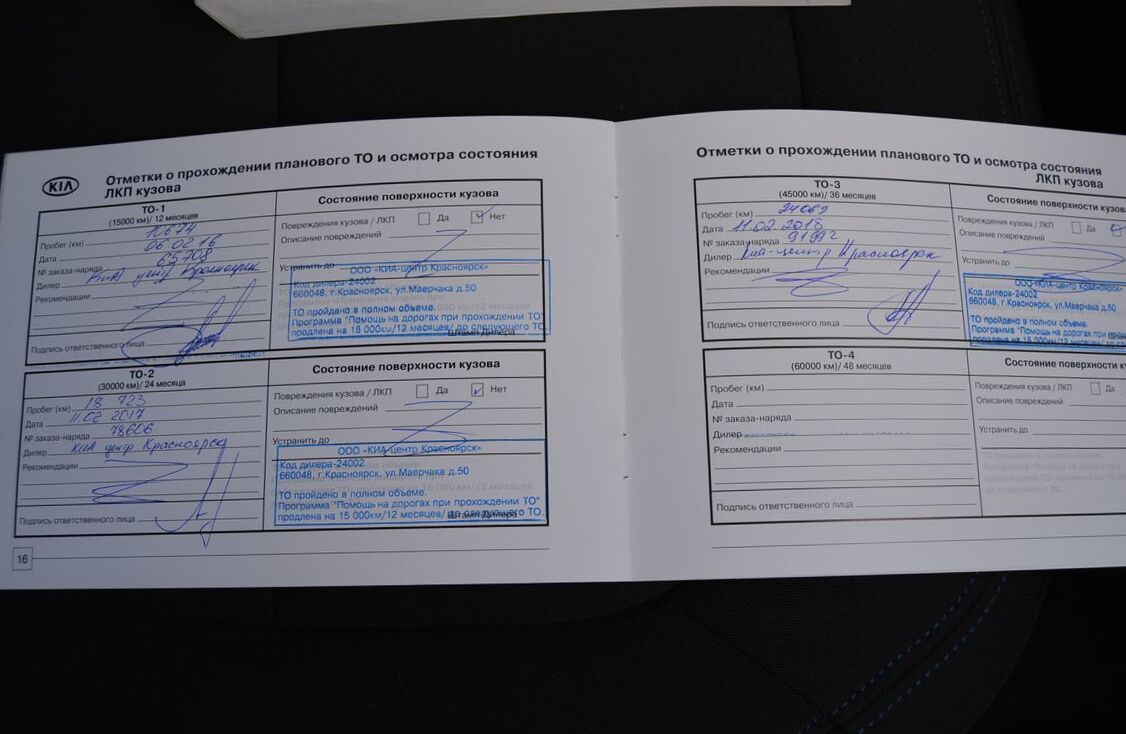 KIA
Отметки о прохождении планового ТО и осмотра состояния
ЛКП кузова
ТО-1
(15000 км)/ 12 месяцев
Пробег (км) 10674
Дата 06.02.16
№ заказа-наряда 65708
Дилер КИА центр Красноярск
Рекомендации
Подпись ответственного лица
Состояние поверхности кузова
Повреждения кузова / ЛКП Да Нет
Описание повреждений
Устранить до
ООО «КИА-центр Красноярск»
Код дилера-24002
660048, г.Красноярск, ул.Маерчака д.50
ТО пройдено в полном объеме.
Программа "Помощь на дорогах при прохождении ТО"
продлена на 15 000км/12 месяцев/ до следующего ТО.
Штамп Дилера
ТО-2
(30000 км)/ 24 месяца
Пробег (км) 18 723
Дата 11.02 2017
№ заказа-наряда 78606
Дилер КИА центр Красноярск
Рекомендации
Подпись ответственного лица
Состояние поверхности кузова
Повреждения кузова / ЛКП Да Нет
Описание повреждений
Устранить до
ООО «КИА-центр Красноярск»
Код дилера-24002
660048, г.Красноярск, ул.Маерчака д.50
ТО пройдено в полном объеме.
Программа "Помощь на дорогах при прохождении ТО"
продлена на 15 000км/12 месяцев/ до следующего ТО.
Штамп Дилера
16
Отметки о прохождении планового ТО и осмотра состояния
ЛКП кузова
ТО-3
(45000 км)/ 36 месяцев
Пробег (км) 24069
Дата 11.02.2018
№ заказа-наряда 91992
Дилер Киа-центр Красноярск
Рекомендации
Подпись ответственного лица
Состояние поверхности кузова
Повреждения кузова / ЛКП Да
Описание повреждений
Устранить до
ООО «КИА-центр Красноярск»
Код дилера-24002
660048, г.Красноярск, ул.Маерчака д.50
ТО пройдено в полном объеме.
Программа "Помощь на дорогах при
продлена на 15 000км/12 месяцев/ до
ТО-4
(60000 км)/ 48 месяцев
Пробег (км)
Дата
№ заказа-наряда
Дилер
Рекомендации
Подпись ответственного лица
Состояние поверхности
Повреждения кузова / ЛКП Да
Описание повреждений
Устранить до